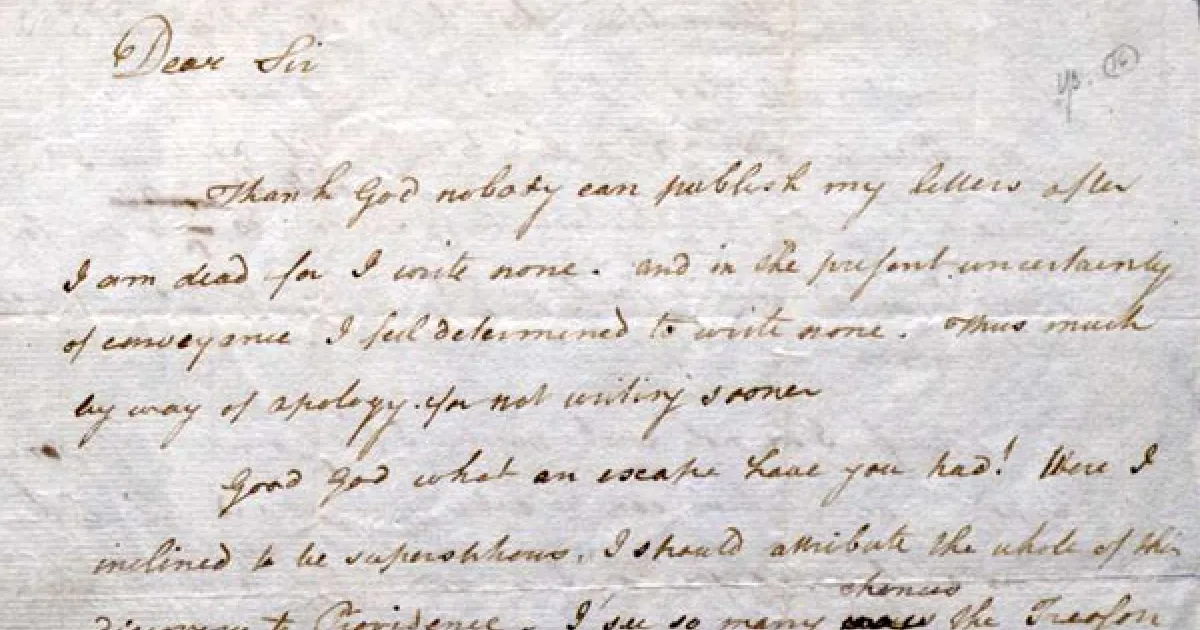 Dear Sir
16
Thank God nobody can publish my letters after
I am dead for I write none. and in the present uncertainty
of conveyance I feel determined to write none. Thus much
by way of apology for not writing sooner
Good God what an escape have you had! Were I
inclined to be superstitious, I should attribute the whole of this
chances
discovery to Providence. I see so many the Treason